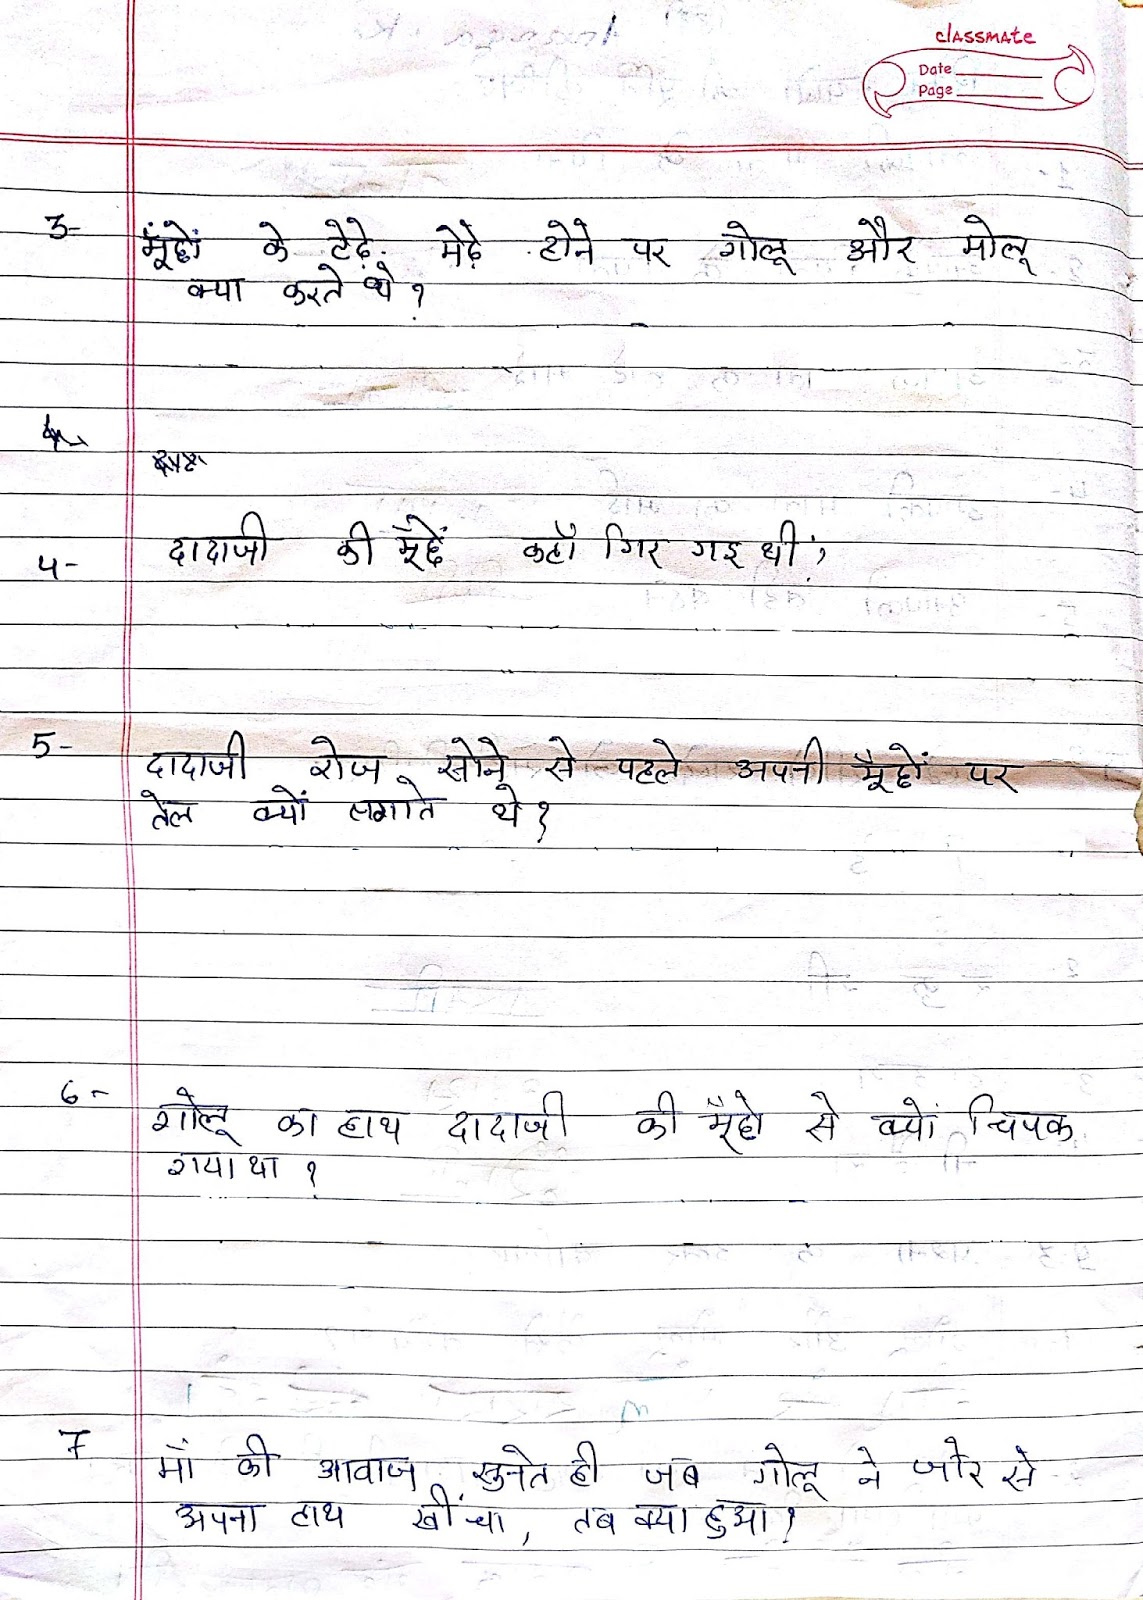 classmate
Date
Page
3- मूँछों के टेढ़े. मेढ़े होने पर गोलू और मोलू
क्या करते थे ?
4- दादाजी की मूँछें कहाँ गिर गइ थीं ?
5- दादाजी रोज सोने से पहले अपनी मूँछों पर
तेल क्यों लगाते थे ?
6- गोलू का हाथ दादाजी की मूँछो से क्यों चिपक
गया था ?
7 माँ की आवाज सुनते ही जब गोलू ने जोर से
अपना हाथ खींचा , तब क्या हुआ ?